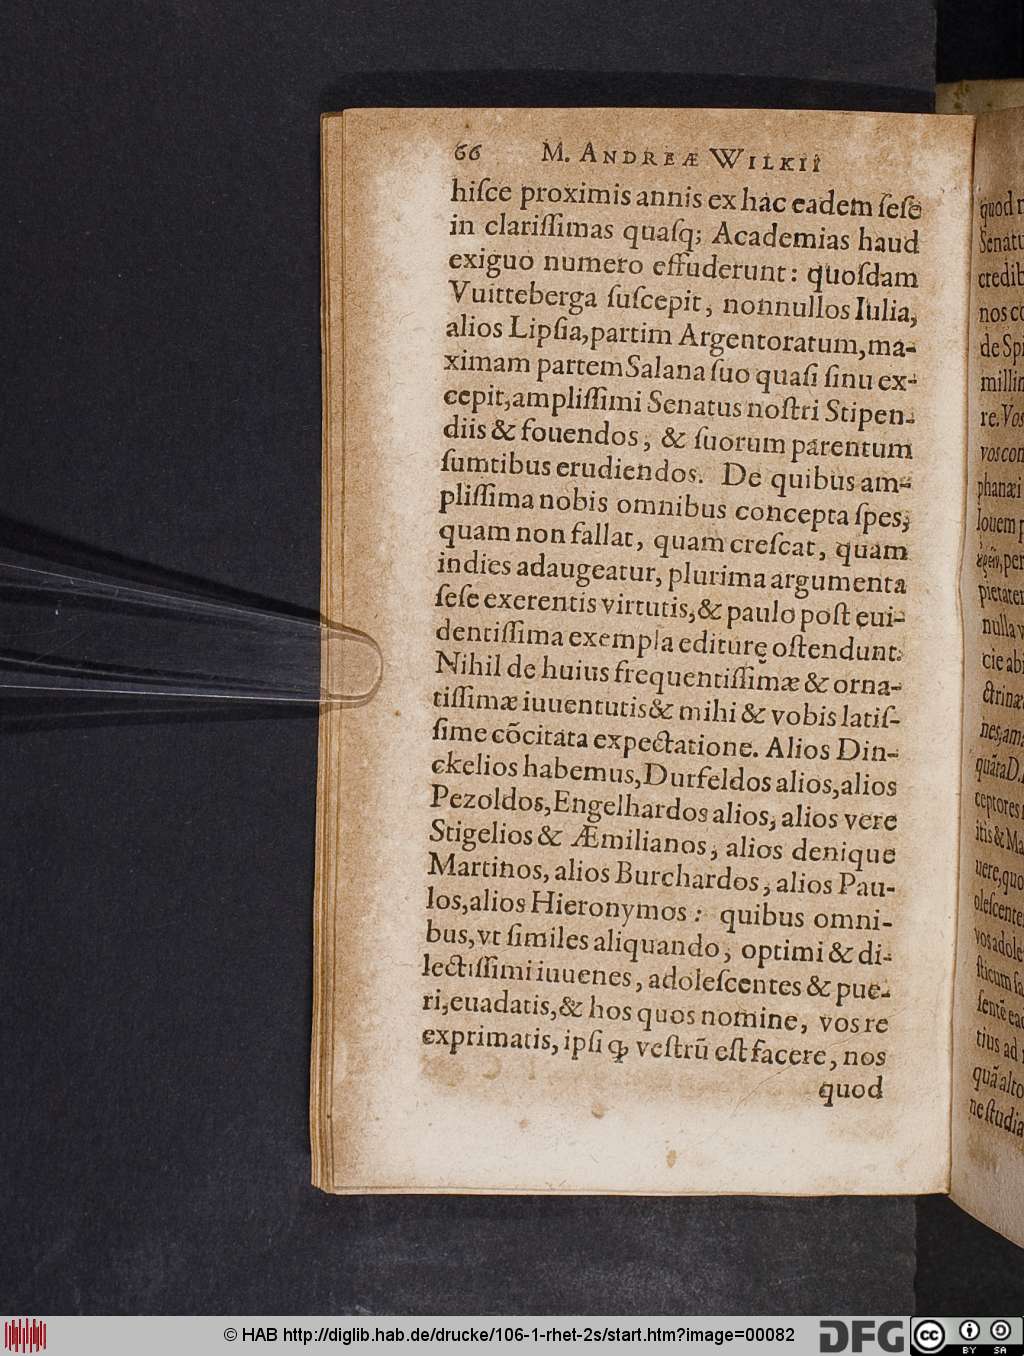 66 M. ANDREÆ WILKII
hiſce proximis annis ex hac eadem ſeſe
in clariſſimas quaſq; Academias haud
exiguo numero effuderunt: quoſdam
Vuitteberga ſuſcepit, nonnullos Iulia,
alios Lipſia,partim Argentoratum,ma-
ximam partem Salana ſuo quaſi ſinu ex-
cepit,ampliſſimi Senatus noſtri Stipen-
diis & fouendos, & ſuorum parentum
ſumtibus erudiendos. De quibus am-
pliſſima nobis omnibus concepta ſpes,
quam non fallat, quam creſcat, quam
indies adaugeatur, plurima argumenta
ſeſe exerentis virtutis,& paulo poſt eui-
dentiſſima exempla editurę oſtendunt.
Nihil de huius frequentiſſimæ & orna-
tiſſimæ iuuentutis & mihi & vobis latiſ-
ſime cõcitata expectatione. Alios Din-
ckelios habemus,Durfeldos alios,alios
Pezoldos,Engelhardos alios, alios vere
Stigelios & Æmilianos, alios denique
Martinos, alios Burchardos, alios Pau-
los,alios Hieronymos: quibus omni-
bus,vt ſimiles aliquando, optimi & di-
lectiſſimi iuuenes, adoleſcentes & pue-
ri,euadatis,& hos quos nomine, vos re
exprimatis, ipſi ꝙ veſtrũ eſt facere, nos
quod
quod
Senatu
credib
nos co
de Spi
millim
re. Vos
vos con
phanæi
Iouem p
, per
pietatem
nulla v
cie abi
ctrinæ
nes, am
quãta D.
ceptores
itis & Ma
uere, quo
oleſcente
vos adole
ſticum ſa
ſentẽ ead
tius ad
quã alto
ne ſtudia
© HAB http://diglib.hab.de/drucke/106-1-rhet-2s/start.htm?image=00082
DFG
cc
BY SA